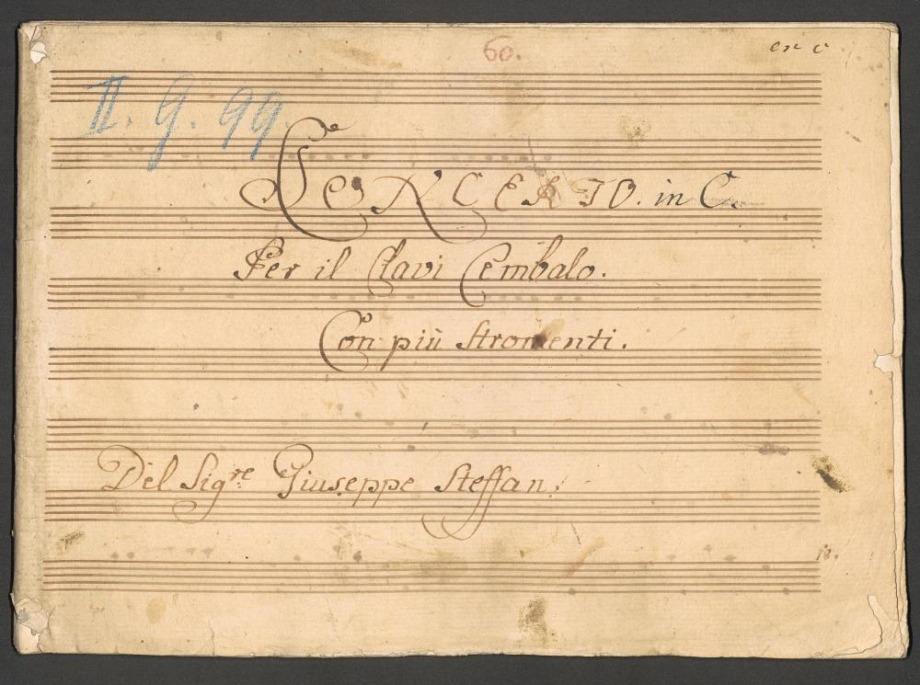 60.
en c
II. 9. 99.
CONCERTO. in C.
Per il Clavi Cembalo.
Con più Stromenti.
Del Sig:re Giuseppe Steffan.